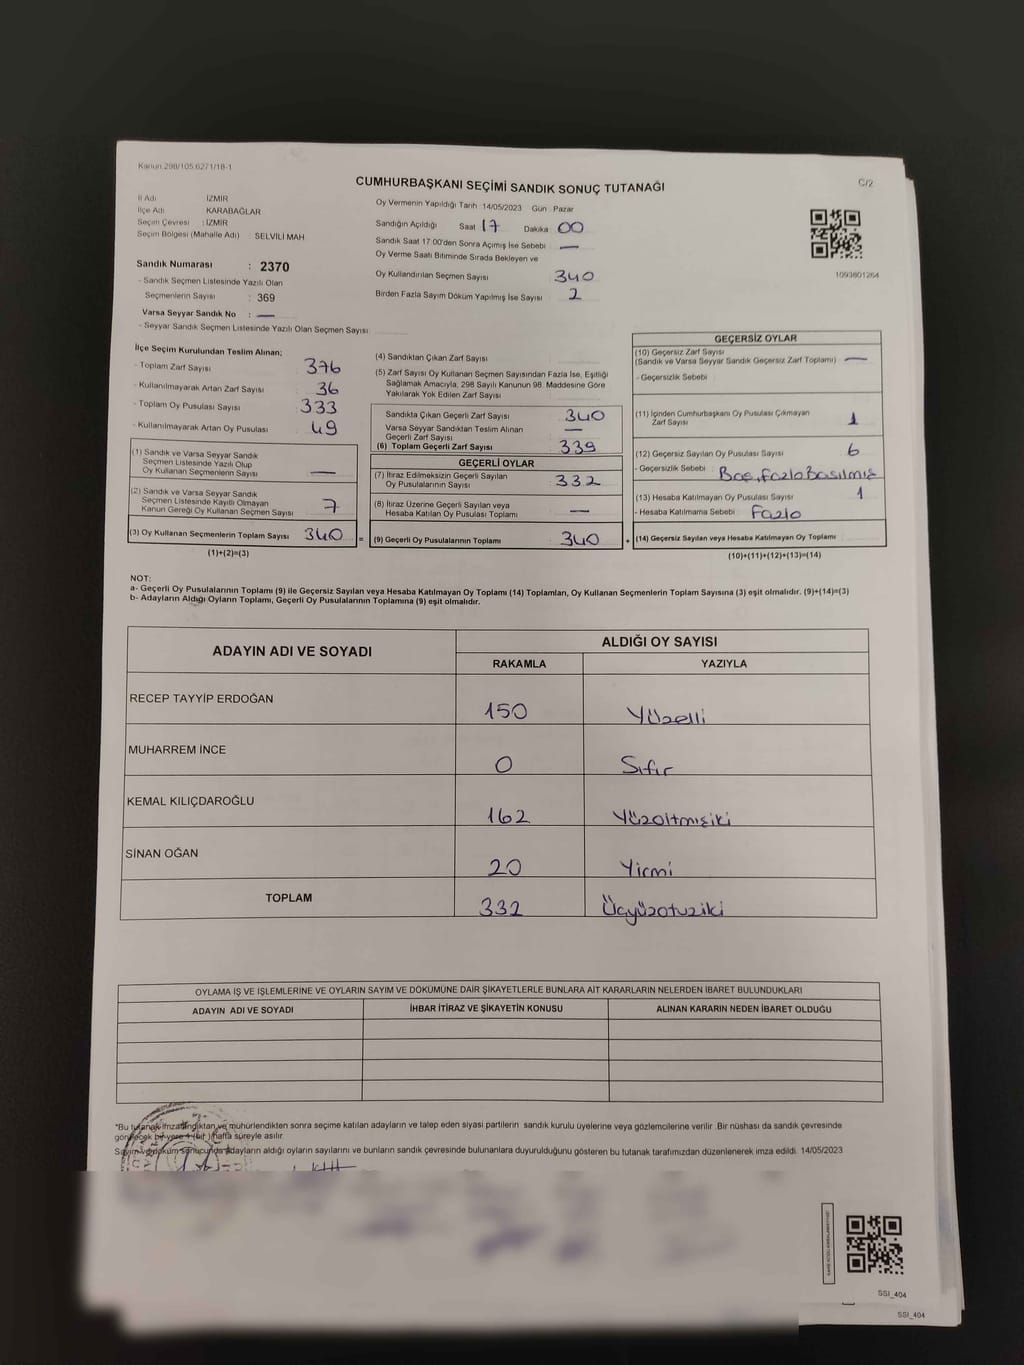 Kanun 298/105.6271/18-1
C/2
CUMHURBAŞKANI SEÇİMİ SANDIK SONUÇ TUTANAĞI
İl Adı : İZMİR
İlçe Adı : KARABAĞLAR
Seçim Çevresi : İZMİR
Seçim Bölgesi (Mahalle Adı) : SELVİLİ MAH
Sandık Numarası : 2370
- Sandık Seçmen Listesinde Yazılı Olan
Seçmenlerin Sayısı : 369
Varsa Seyyar Sandık No : —
- Seyyar Sandık Seçmen Listesinde Yazılı Olan Seçmen Sayısı:
Oy Vermenin Yapıldığı Tarih :14/05/2023 Gün : Pazar
Sandığın Açıldığı Saat 17 Dakika 00
Sandık Saat 17:00'den Sonra Açımış İse Sebebi : —
Oy Verme Saati Bitiminde Sırada Bekleyen ve
Oy Kullandırılan Seçmen Sayısı : 340
Birden Fazla Sayım Döküm Yapılmış İse Sayısı : 2
1093801264
İlçe Seçim Kurulundan Teslim Alınan;
- Toplam Zarf Sayısı : 376
- Kullanılmayarak Artan Zarf Sayısı : 36
- Toplam Oy Pusulası Sayısı : 333
- Kullanılmayarak Artan Oy Pusulası : 49
(1) Sandık ve Varsa Seyyar Sandık
Seçmen Listesinde Yazılı Olup
Oy Kullanan Seçmenlerin Sayısı : —
(2) Sandık ve Varsa Seyyar Sandık
Seçmen Listesinde Kayıtlı Olmayan
Kanun Gereği Oy Kullanan Seçmen Sayısı : 7
(3) Oy Kullanan Seçmenlerin Toplam Sayısı : 340
(1)+(2)=(3)
(4) Sandıktan Çıkan Zarf Sayısı :
(5) Zarf Sayısı Oy Kullanan Seçmen Sayısından Fazla İse, Eşitliği
Sağlamak Amacıyla, 298 Sayılı Kanunun 98. Maddesine Göre
Yakılarak Yok Edilen Zarf Sayısı :
Sandıkta Çıkan Geçerli Zarf Sayısı : 340
Varsa Seyyar Sandıktan Teslim Alınan
Geçerli Zarf Sayısı : —
(6) Toplam Geçerli Zarf Sayısı : 339
GEÇERLİ OYLAR
(7) İtiraz Edilmeksizin Geçerli Sayılan
Oy Pusulalarının Sayısı : 332
(8) İtiraz Üzerine Geçerli Sayılan veya
Hesaba Katılan Oy Pusulası Toplamı : —
= (9) Geçerli Oy Pusulalarının Toplamı : 340
GEÇERSİZ OYLAR
(10) Geçersiz Zarf Sayısı
(Sandık ve Varsa Seyyar Sandık Geçersiz Zarf Toplamı) : —
- Geçersizlik Sebebi :
(11) İçinden Cumhurbaşkanı Oy Pusulası Çıkmayan
Zarf Sayısı : 1
(12) Geçersiz Sayılan Oy Pusulası Sayısı : 6
- Geçersizlik Sebebi : Boş, Fazla Basılmış
(13) Hesaba Katılmayan Oy Pusulası Sayısı : 1
- Hesaba Katılmama Sebebi : Fazla
+ (14) Geçersiz Sayılan veya Hesaba Katılmayan Oy Toplamı :
(10)+(11)+(12)+(13)=(14)
NOT:
a- Geçerli Oy Pusulalarının Toplamı (9) ile Geçersiz Sayılan veya Hesaba Katılmayan Oy Toplamı (14) Toplamları, Oy Kullanan Seçmenlerin Toplam Sayısına (3) eşit olmalıdır. (9)+(14)=(3)
b- Adayların Aldığı Oyların Toplamı, Geçerli Oy Pusulalarının Toplamına (9) eşit olmalıdır.
ADAYIN ADI VE SOYADI ALDIĞI OY SAYISI
RAKAMLA YAZIYLA
RECEP TAYYİP ERDOĞAN 150 Yüzelli
MUHARREM İNCE 0 Sıfır
KEMAL KILIÇDAROĞLU 162 Yüzaltmışiki
SİNAN OĞAN 20 Yirmi
TOPLAM 332 Üçyüzotuziki
OYLAMA İŞ VE İŞLEMLERİNE VE OYLARIN SAYIM VE DÖKÜMÜNE DAİR ŞİKAYETLERLE BUNLARA AİT KARARLARIN NELERDEN İBARET BULUNDUKLARI
ADAYIN ADI VE SOYADI İHBAR İTİRAZ VE ŞİKAYETİN KONUSU ALINAN KARARIN NEDEN İBARET OLDUĞU
*Bu tutanak imzalandıktan ve mühürlendikten sonra seçime katılan adayların ve talep eden siyasi partilerin sandık kurulu üyelerine veya gözlemcilerine verilir. Bir nüshası da sandık çevresinde
görülecek bir yere 1 (bir) hafta süreyle asılır.
Sayım ve döküm sonucunda adayların aldığı oyların sayılarını ve bunların sandık çevresinde bulunanlara duyurulduğunu gösteren bu tutanak tarafımızdan düzenlenerek imza edildi. 14/05/2023
SSI_404
SSI_404